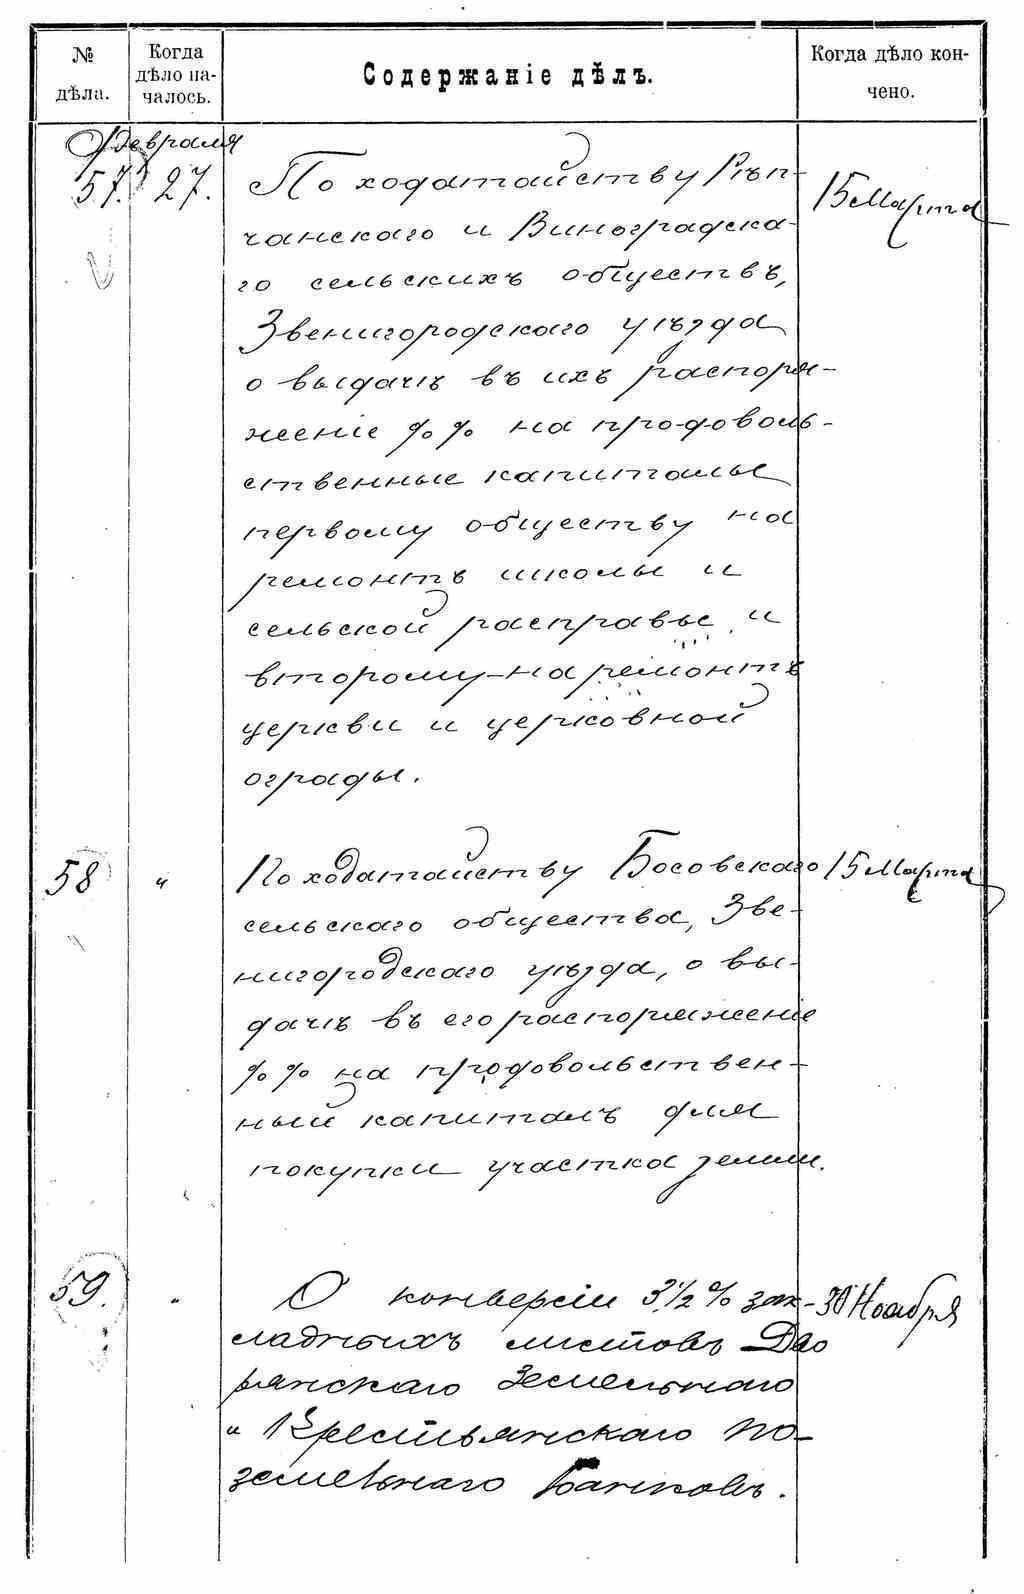 № дѣла.
Когда дѣло на-
чалось.
Содержаніе дѣлъ.
Когда дѣло кон-
чено.
Февраля
57. 27. По ходатайству Рѣп- 15 Марта
чанскаго и Виноградска-
го сельскихъ обществъ,
Звенигородскаго уѣзда
о выдачѣ въ ихъ распоря-
женіе %% на продоволь-
ственные капиталы
первому обществу на
ремонтъ школы и
сельской расправы и
второму - на ремонтъ
церкви и церковной
ограды.
58 " По ходатайству Босовскаго 15 Марта
сельскаго общества, Зве-
нигородскаго уѣзда, о вы-
дачѣ въ его распоряженіе
%% на продовольствен-
ный капиталъ для
покупки участка земли.
59. " О конверсіи 3 1/2 % зак- 30 Ноября
ладныхъ листовъ Дво
рянскаго Земельнаго
и Крестьянскаго По-
земельнаго Банковъ.